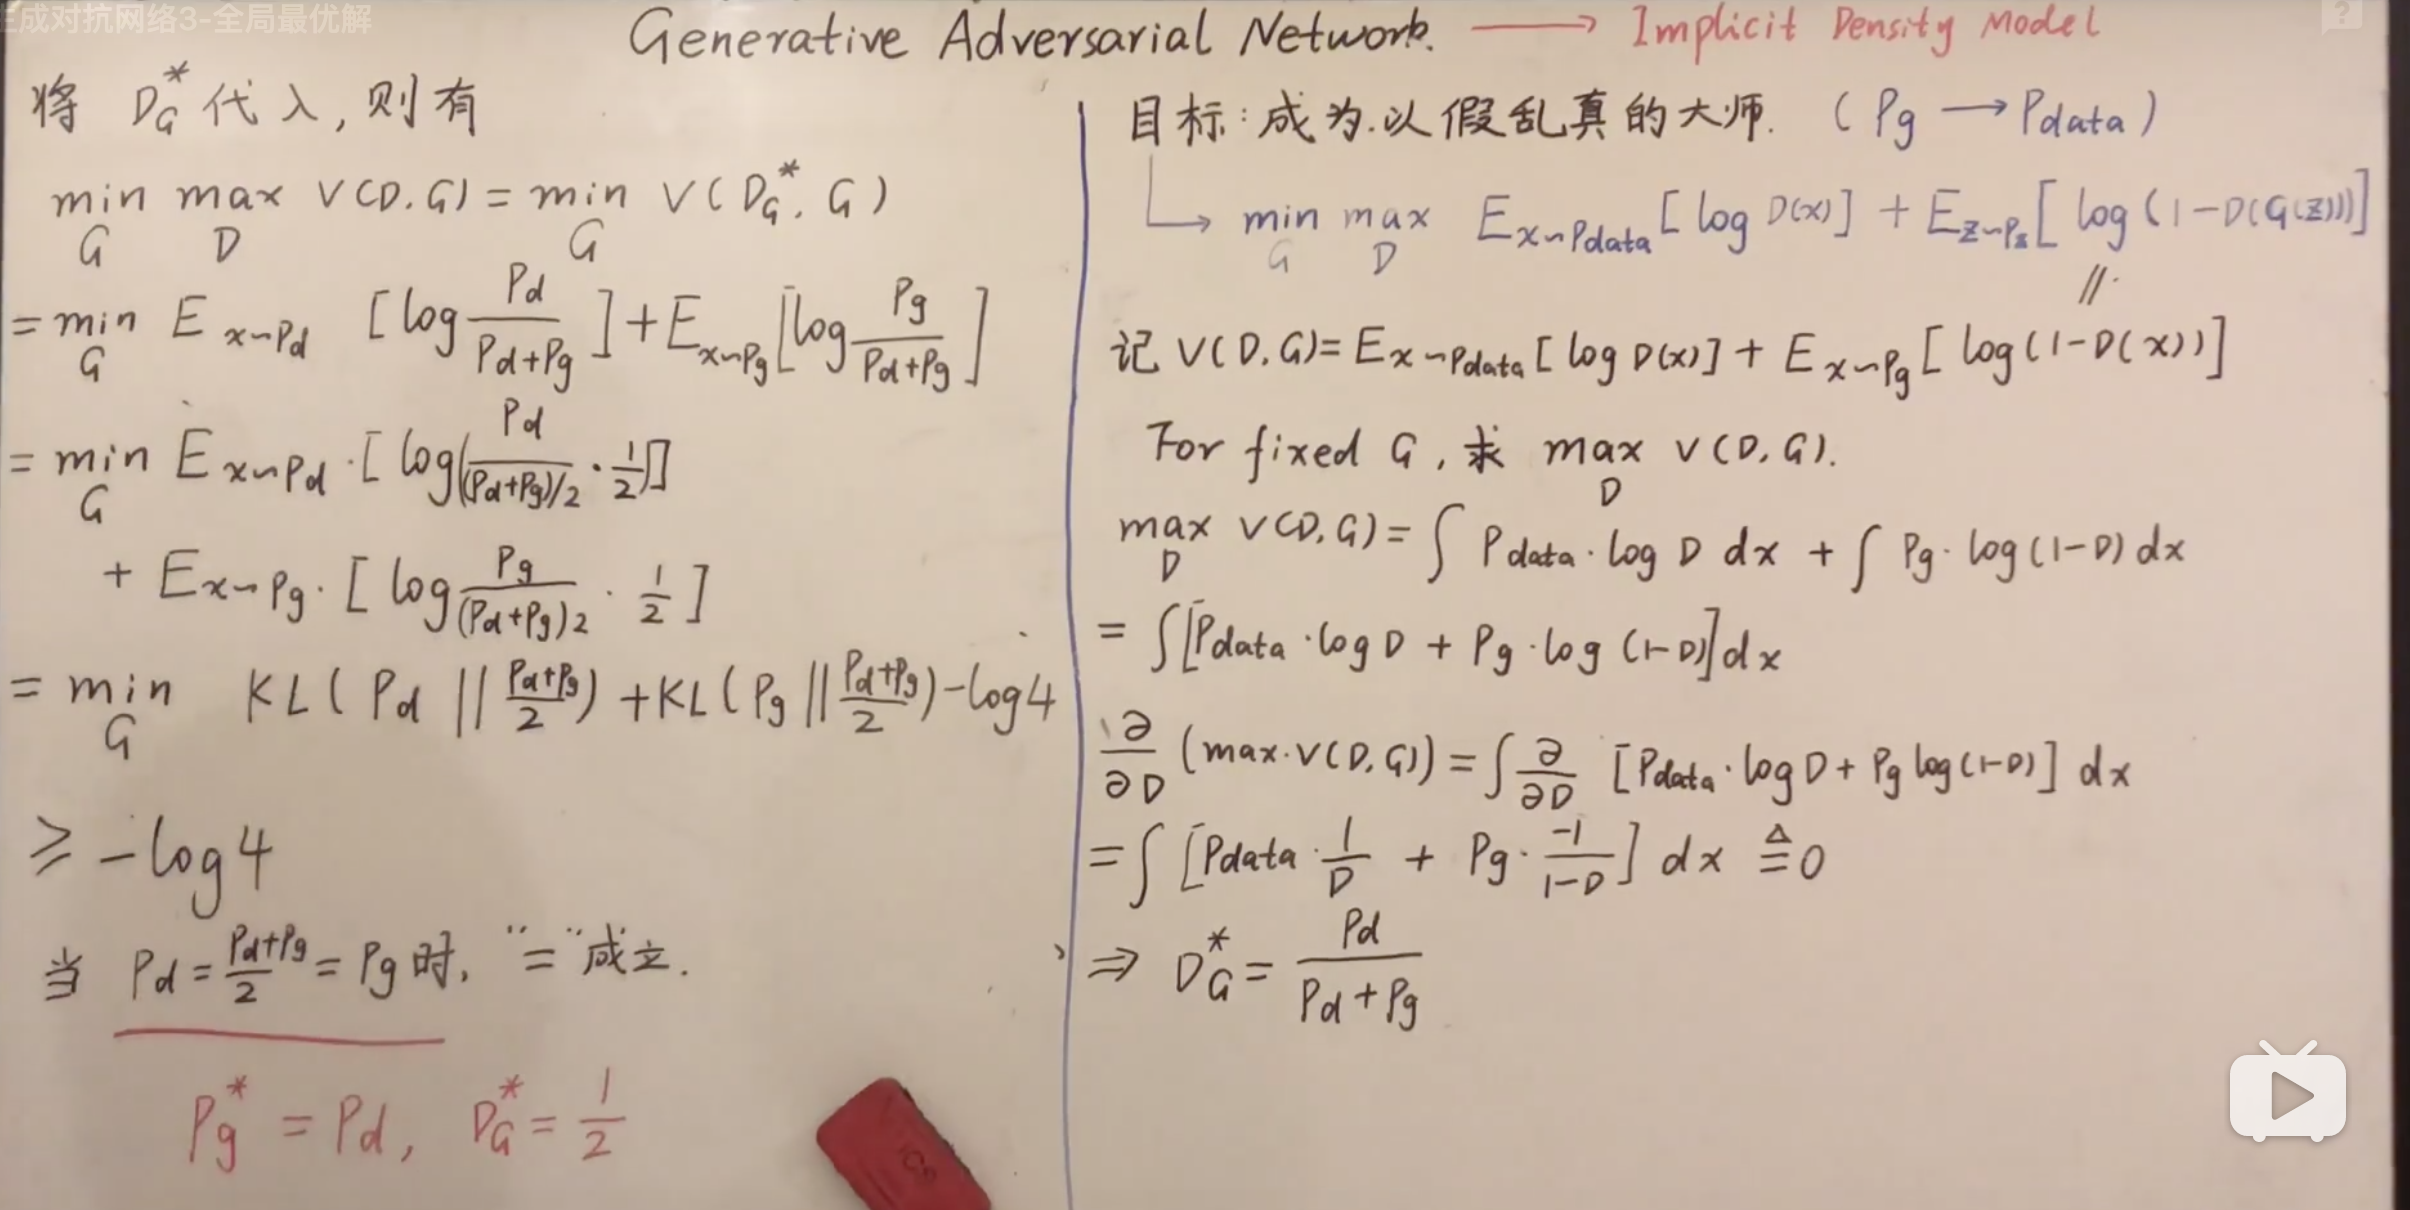 生成对抗网络3-全局最优解
Generative Adversarial Network. → Implicit Density Model
将 D_G^* 代入, 则有
min_G max_D V(D,G) = min_G V(D_G^*, G)
= min_G E_{x~Pd} [log Pd/(Pd+Pg)] + E_{x~Pg} [log Pg/(Pd+Pg)]
= min_G E_{x~Pd} · [log(Pd/((Pd+Pg)/2) · 1/2)]
+ E_{x~Pg} · [log Pg/((Pd+Pg)2) · 1/2]
= min_G KL(Pd || (Pd+Pg)/2) + KL(Pg || (Pd+Pg)/2) - log4
≥ -log4
当 Pd = (Pd+Pg)/2 = Pg 时, "=" 成立.
Pg^* = Pd, D_G^* = 1/2
目标: 成为.以假乱真的大师. (Pg → Pdata)
→ min_G max_D E_{x~Pdata} [log D(x)] + E_{z~Pz} [log(1-D(G(z)))]
//
记 V(D,G) = E_{x~Pdata} [log D(x)] + E_{x~Pg} [log(1-D(x))]
For fixed G, 求 max_D V(D,G).
max_D V(D,G) = ∫ Pdata · log D dx + ∫ Pg · log(1-D) dx
= ∫ [Pdata · log D + Pg · log (1-D)] dx
∂/∂D (max·V(D,G)) = ∫ ∂/∂D [Pdata · log D + Pg log(1-D)] dx
= ∫ [Pdata · 1/D + Pg · -1/(1-D)] dx ≜ 0
⇒ D_G^* = Pd/(Pd+Pg)